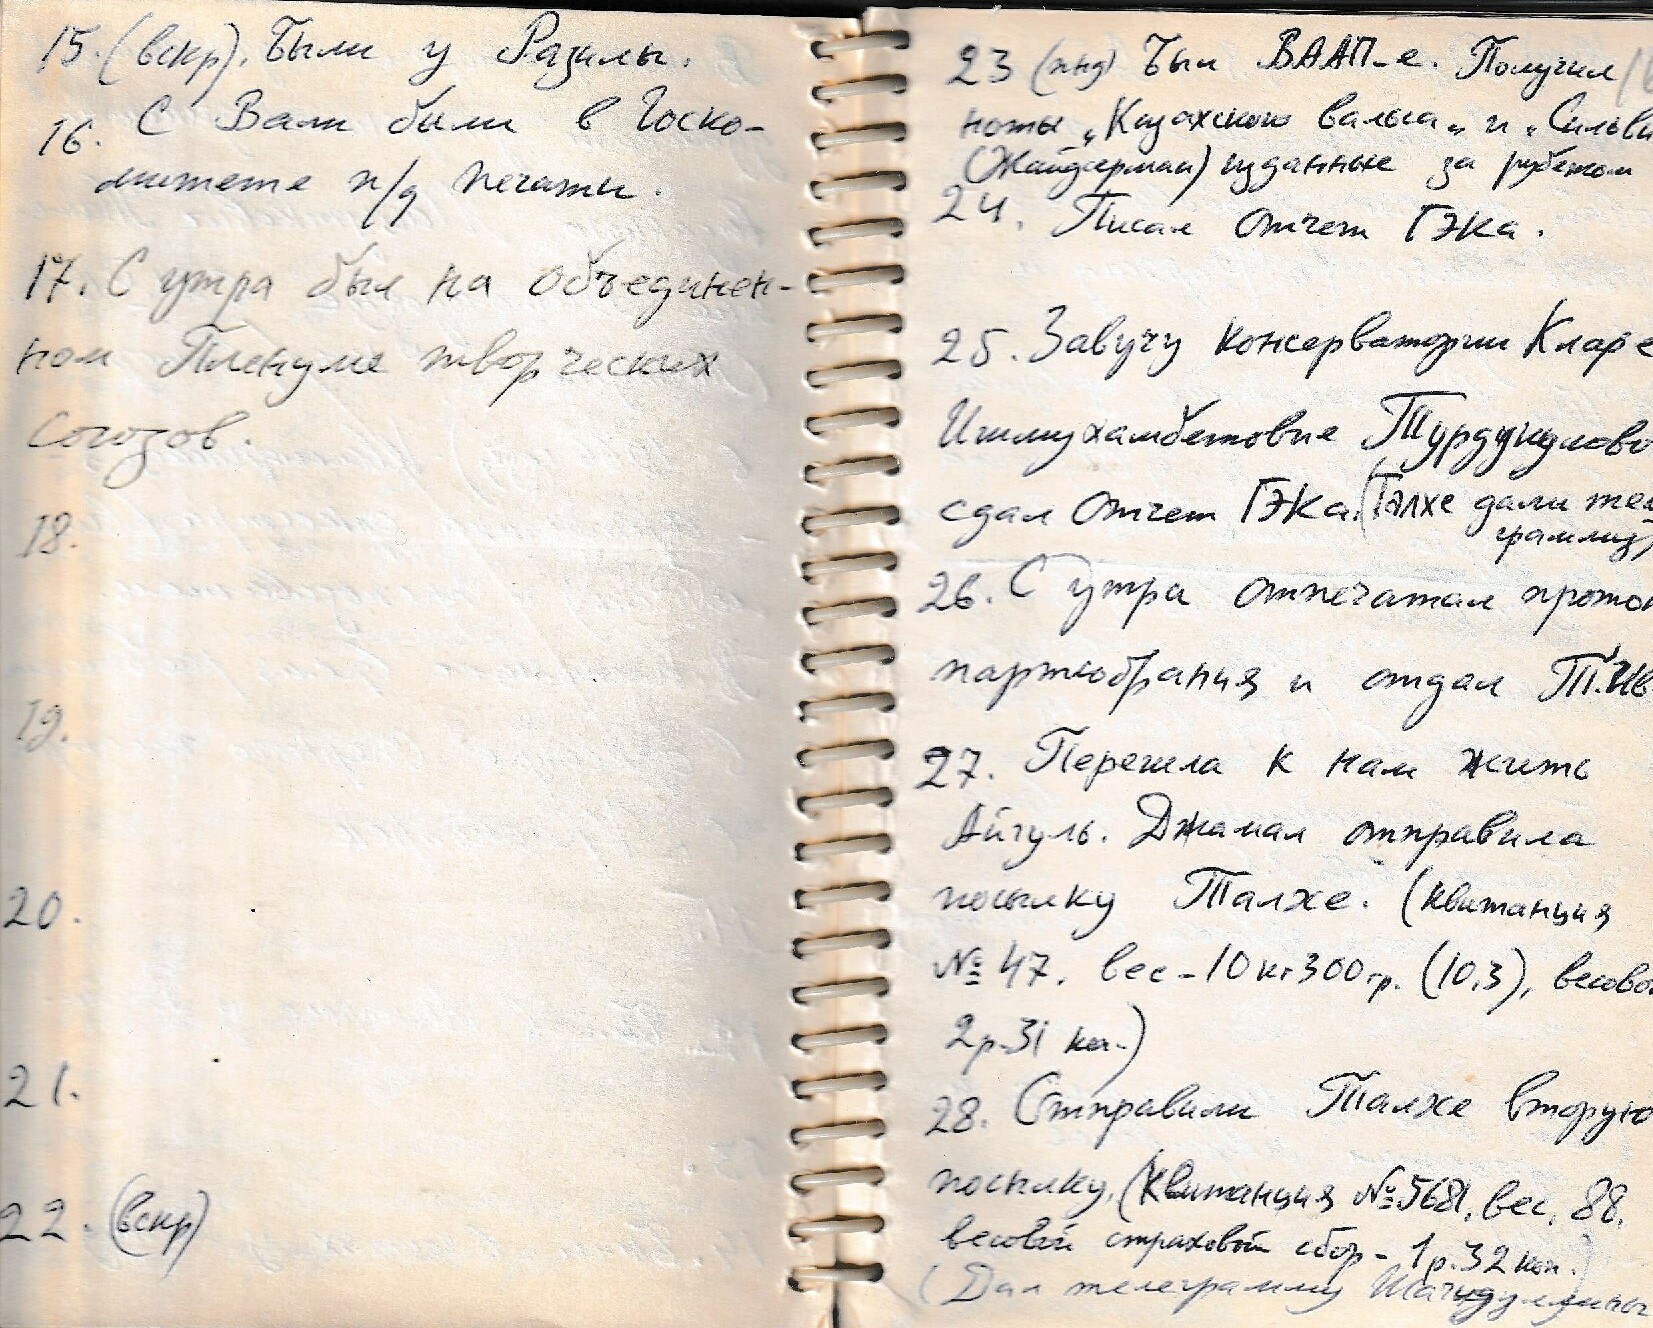 15. (вскр). Были у Разилы.
16. С Вали были в Госко-
митете п/д печати.
17. С утра был на объединен-
ном Пленуме творческих
Союзов.
18.
19.
20.
21.
22. (вскр)
23 (пнд) Был ВААП-е. Получил
ноты „Казахского вальса„ и „Сильви
(Жайдарман) изданные за рубежом
24. Писал отчет ГЭКа.
25. Завучу консерватории Кларе
Ишмухамбетовне Турдукулово
сдал отчет ГЭКа. (Талхе дали теле
грамму)
26. С утра отпечатал проток
партсобрания и отдал Т.Ив
27. Перешла к нам жить
Айгуль. Джамал отправила
посылку Талхе. (квитанция
№ 47. вес - 10 кг 300 гр. (10,3), весово
2 р. 31 к.)
28. Отправили Талхе вторую
посылку. (Квитанция № 5681, вес, 88,
весовой страховой сбор - 1 р. 32 коп.)
(Дал телеграмму